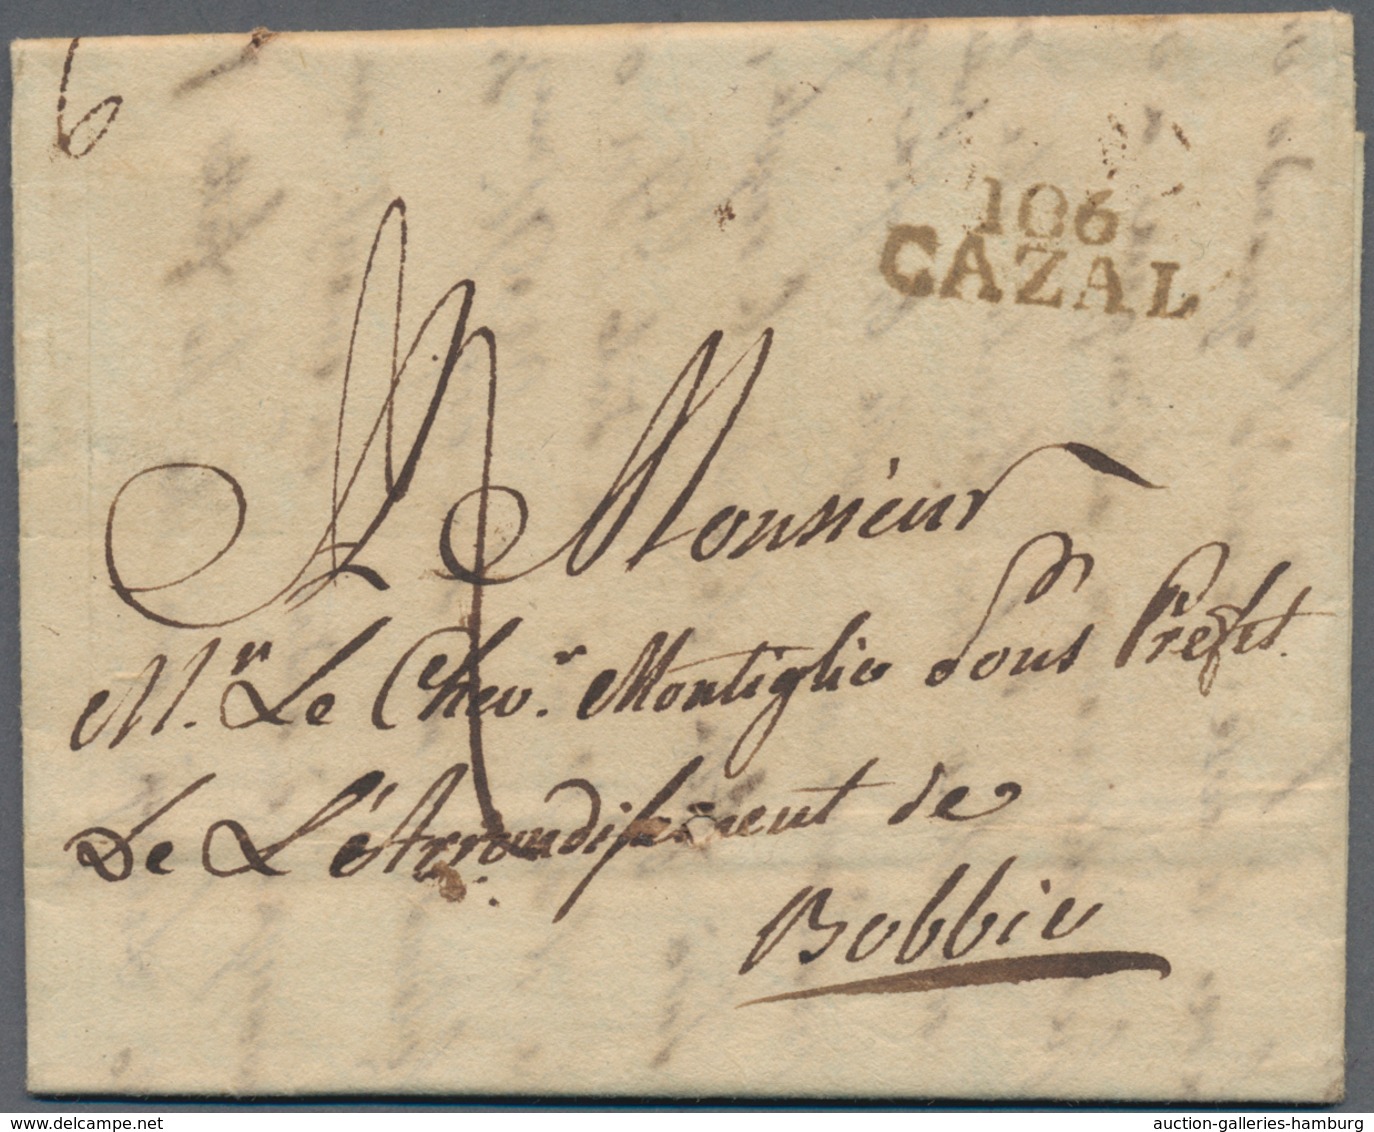 6
106
CAZAL
A Monsieur
Mr. Le Chevr. Montiglio Sous Préfet
De L'Arrondissement de
Bobbio
auction-galleries-hamburg